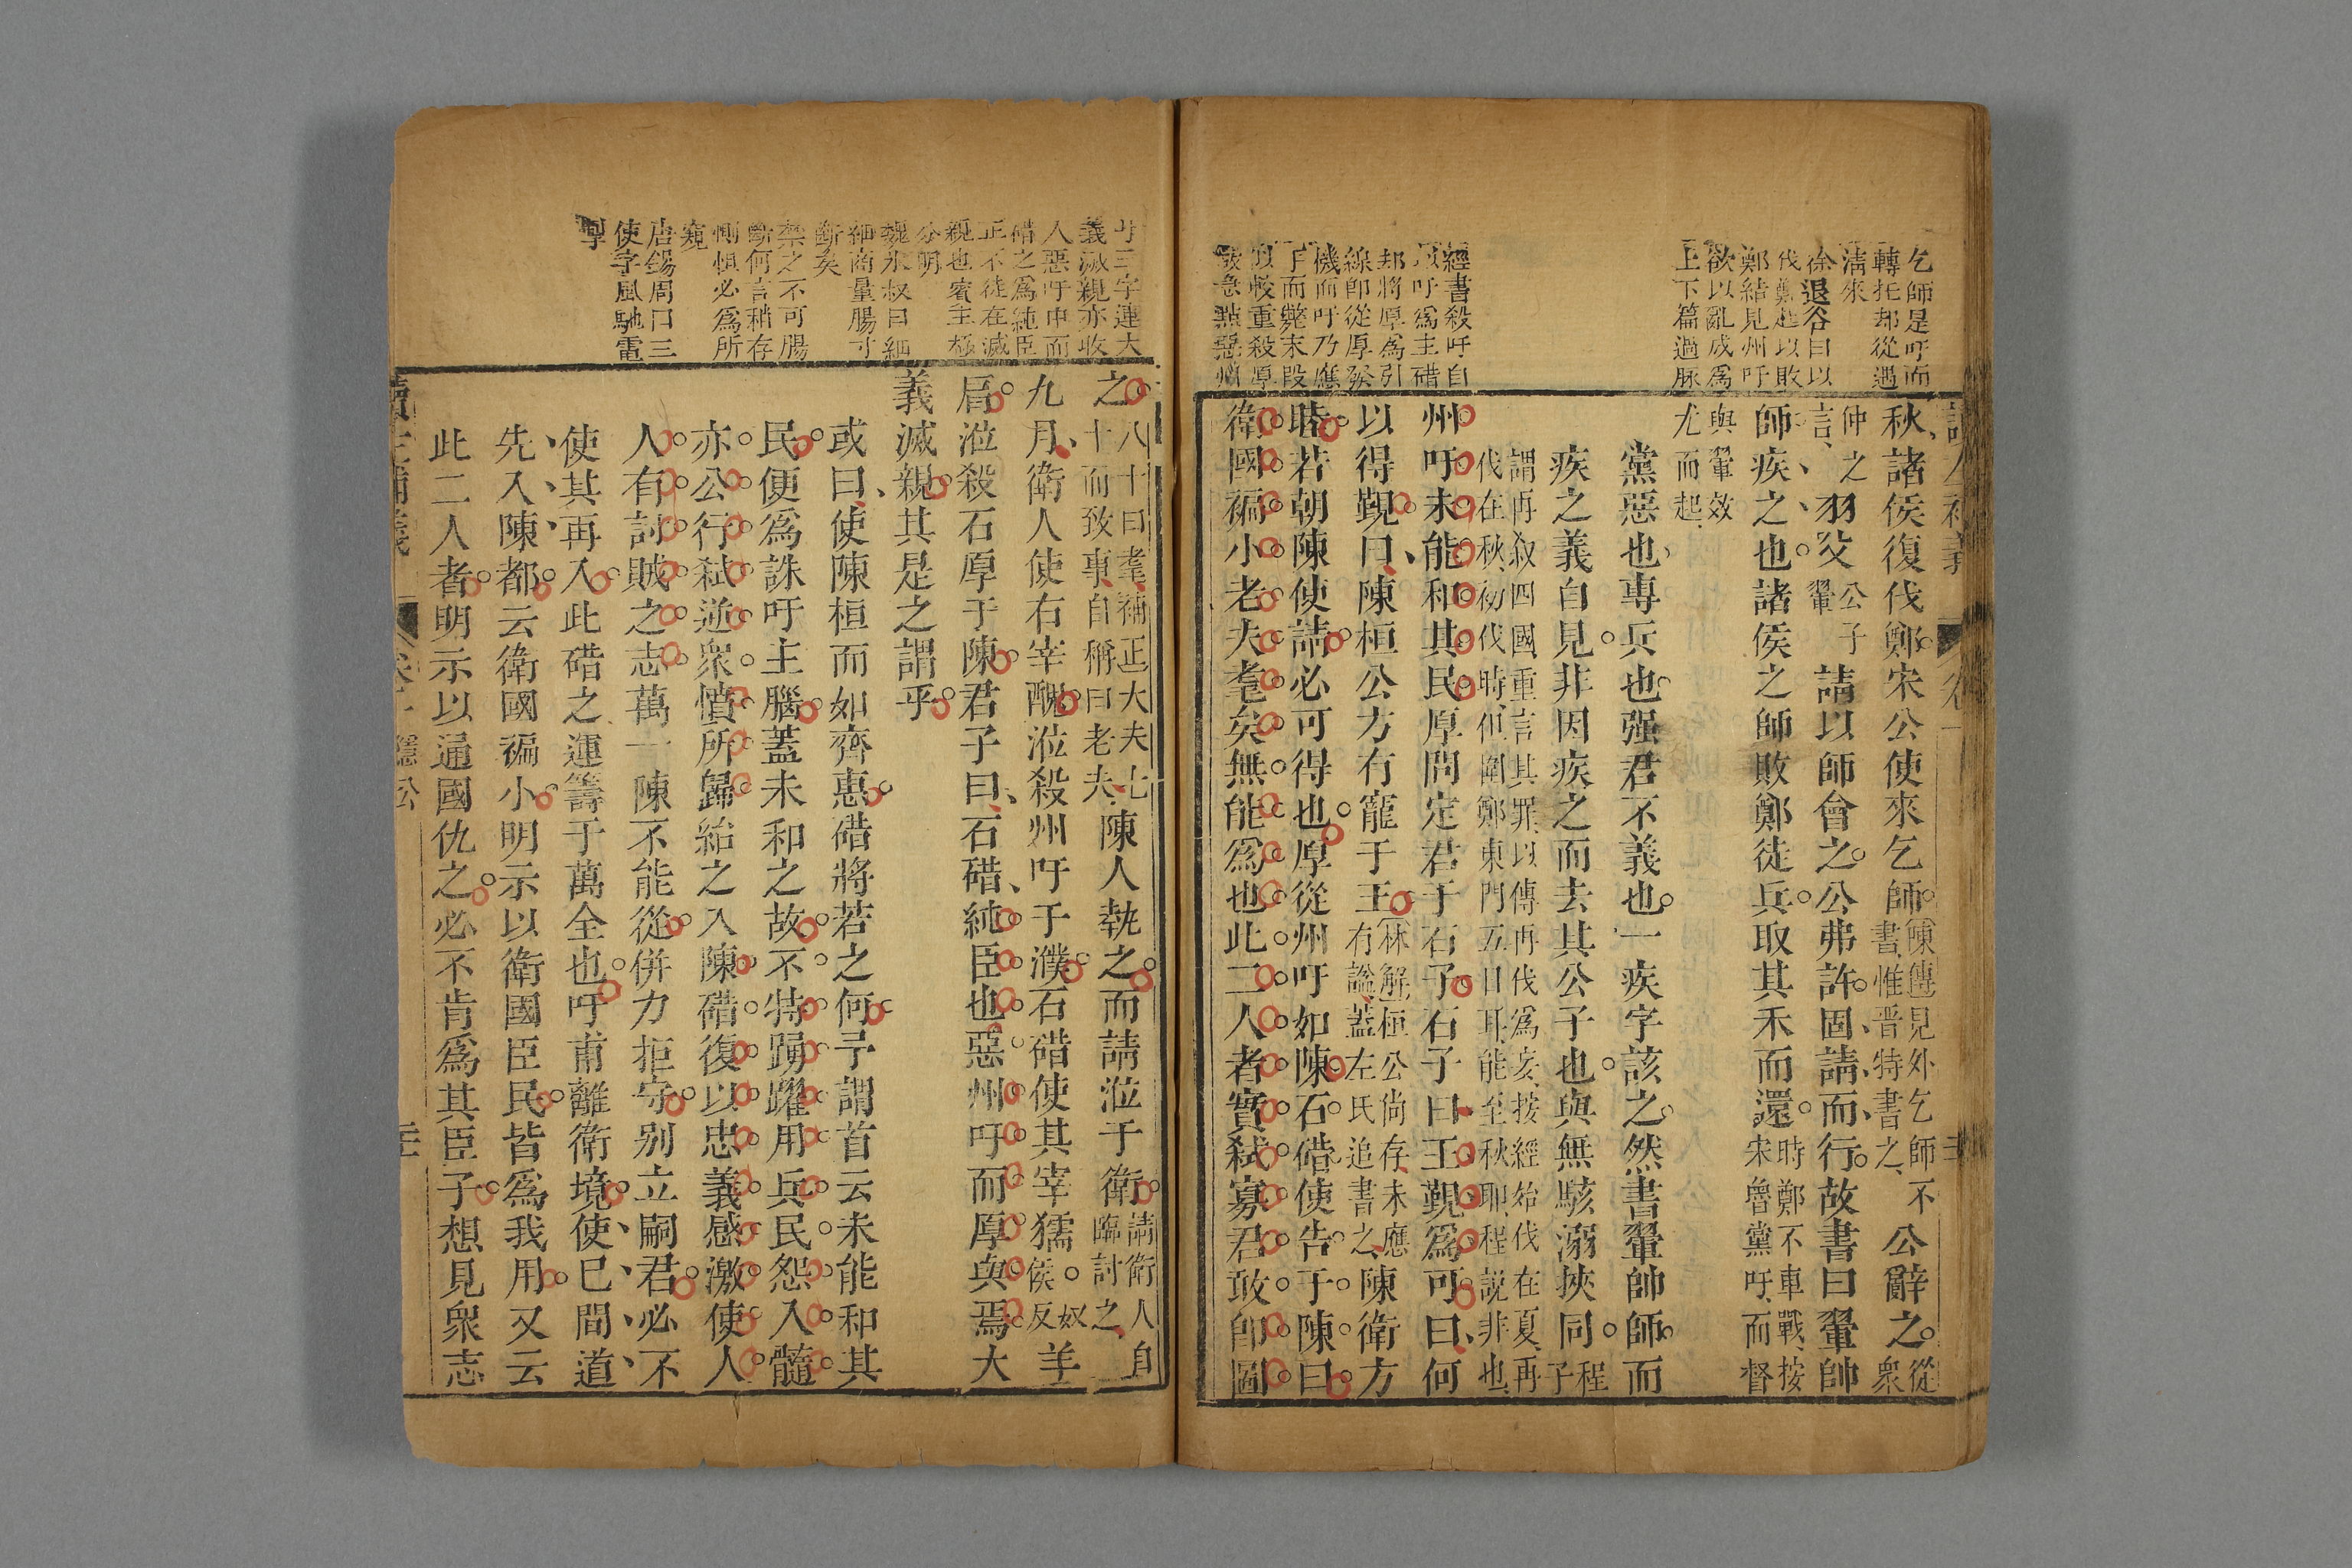 乞師是吁而
轉托却從遇
淸來
徐退谷曰以
伐鄭起以敗
鄭結見州吁
欲以亂成爲
上下篇過脉
經書殺吁自
吁爲主碏
却將厚爲引
線卽從厚發
機而吁乃應
手而斃末段
似較重殺厚
急點惡州
卷一
秋諸侯復伐鄭宋公使來乞師陳傅見外乞師不書惟晉特書之公辭之從衆
仲之言羽父公子翬請以師會之公弗許固請而行故書曰翬帥
師疾之也諸侯之師敗鄭徒兵取其禾而還時鄭不車戰按宋魯黨吁而督
與翬效尤而起
黨惡也專兵也强君不義也一疾字該之然書翬帥師而
疾之義自見非因疾之而去其公子也與無駭溺挾同程子
謂再叙四國重言其罪以傳再伐爲妄按經始伐在夏再
伐在秋初伐時但圍鄭東門五日耳能至秋耶程説非也
州吁未能和其民厚問定君于石子石子曰王覲爲可曰何
以得覲曰陳桓公方有寵于王林解桓公尙存未應有諡蓋左氏追書之陳衛方
睦若朝陳使請必可得也厚從州吁如陳石碏使告于陳曰
衛國褊小老夫耄矣無能爲也此二人者實弑寡君敢卽圖
廿三字連大
義滅親亦收
人惡吁申而
碏之爲純臣
正不徒在滅
親也賓主極
分明
魏氷叔曰細
細商量腸寸
斷矣
禁之不可腸
斷何言稍存
惻惧必爲所
窺
唐錫周曰三
使字風馳電
掣
之八十曰耄禮正大夫七十而致事自稱曰老夫陳人執之而請涖于衛請衛人自臨討之
九月衛人使右宰醜涖殺州吁于濮石碏使其宰獳奴侯反羊
肩涖殺石厚于陳君子曰石碏純臣也惡州吁而厚與焉大
義滅親其是之謂乎
或曰使陳桓而如齊惠碏將若之何予謂首云未能和其
民便爲誅吁主腦蓋未和之故不特踴躍用兵民怨入髓
亦公行弑逆衆憤所歸紿之入陳碏復以忠義感激使人
人有討賊之志萬一陳不能從併力拒守别立嗣君必不
使其再入此碏之運籌于萬全也吁甫離衛境使已間道
先入陳都云衛國褊小明示以衛國臣民皆爲我用又云
此二人者明示以通國仇之必不肯爲其臣子想見衆志
隱公